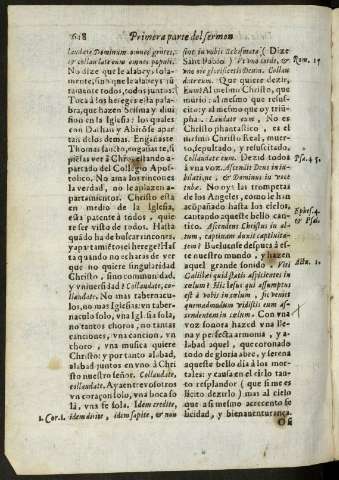 618 Primera parte del sermon
laudate Dominum omnes gentes,
& collaudate eum omnes populi.
No dize que le alabeys sola-
mente, sino que le alabeys jun-
tamẽte todos, todos juntos:
Toca à los hereges esta pala-
bra, que hazen Scisma y diuis
sion en la Iglesia: los quales
con Dathan y Abirõse apar-
tan de los demas. Engañaste
Thomas sancto, engañaste, si
piẽsas ver à Christo estando a-
partado del Collegio Apos-
tolico. No ama los rincones
la verdad, no le aplazen a-
partamientos. Christo està
en medio de la Iglesia,
esta patente à todos, quie
re ser visto de todos. Hasta
quãdo ha de buscar rincones,
y apartamiẽtos el herege? Has
ta quando no echaras de ver
que no quiere singularidad
Christo, sino comunidad,
y vniuersidad? Collaudate, col-
laudate. No mas tabernacu-
los, no mas Iglesia: vn taber-
naculo solo, vna Iglesia sola,
no tantos choros, no tantas
canciones, vna cancion, vn
choro, vna musica quiere
Christo: y por tanto alabad,
alabad juntos en vno à Chri
sto nuestro señor. Collaudate,
collaudate. Aya entre vosotros
vn coraçon solo, vna boca so
la, vna fe sola. Idem credite,
1. Cor. 1. idem dicite, idem sapite, & non
sint in vobis schismata, (Dize
Sant Pablo) Vt vno corde, & Rom. 15
vno ore glorificetis Deum. Collau
date eum. Que quiere dezir,
Eum? Al mesmo Christo, que
murio: al mesmo que resus-
cito: y al mesmo que oy triũ-
pha. Laudate eum. No es
Christo phantastico, es el
mismo Christo Real, muer-
to, sepultado, y resuscitado.
Collaudate eum. Dezid todos
à vna voz. Ascendit Deus in iu- Psa. 45.
bilatione, & Dominus in voce
tubæ. No oys las trompetas
de los Angeles, como le hin
acompañado hasta los cielos,
cantando aqueste bello can-
tico. Ascendens Christus in al- Ephes. 4.
tum, captiuam duxit captiuita- & Psal.
tem? Bueluense despues à es-
te nuestro mundo, y hazen
aquel grande sonido. Viri Actu. 1.
Galilæi quid statis aspicientes in
cœlum? Hic Iesus qui assumptus
est à vobis in cœlum, sic veniet
quemadmodum vidistis eum as-
cendentem in cœlum. Con vna
voz sonora hazed vna lle-
na y perfecta armonia, y a-
labad aquel, que coronado
todo de gloria abre, y serena
aqueste bello dia à los mor-
tales: y causa en el cielo tan-
to resplandor (que si me es
licito dezirlo) mas al cielo
que assi mesmo acrecento fe
licidad, y bienauenturança.